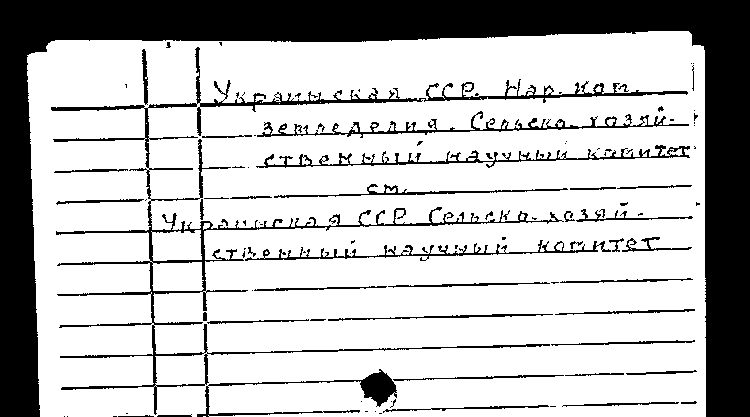 Украинская ССР. Нар. Ком.
земледелия. Сельско-хозяй-
ственный научный комитет
см.
Украинская ССР. Сельско-хозяй-
ственный научный комитет